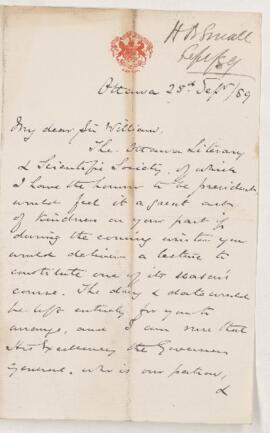 H B Small
Sept/89
Ottawa 25th Sept/89
My dear Sir William,
The Ottawa Literary
& Scientific Society, of which
I have the honour to be president
would feel it a great act
of kindness on your part if
during the coming winter you
would deliver a lecture to
constitute one of its season's
course. The day & date would
be left entirely for you to
arrange, and I am sure that
His Excellency the Governor
General, who is our patron,
&